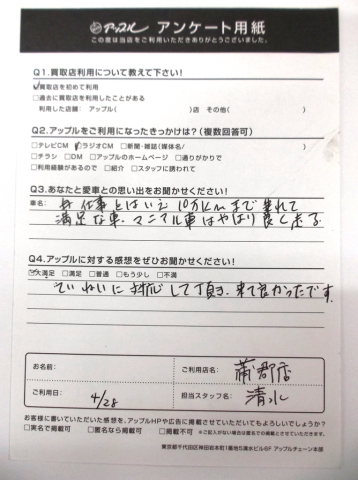 アップル アンケート用紙
この度は当店をご利用いただきありがとうございました。
Q1.買取店利用について教えて下さい!
☑買取店を初めて利用
□過去に買取店を利用したことがある
利用した店舗: アップル( )店 その他( )
Q2.アップルをご利用になったきっかけは?(複数回答可)
□テレビCM ☑ラジオCM □新聞・雑誌(媒体名/ )
□チラシ □DM □アップルのホームページ □通りがかりで
□利用経験があるので □紹介 □スタッフに誘われて
Q3.あなたと愛車との思い出をお聞かせください!
車名:
仕事とはいえ 10万Kmまで乗れて
満足な車、マニアル車はやはり良く走る
Q4.アップルに対する感想をぜひお聞かせください!
☑大満足 □満足 □普通 □もう少し □不満
ていねいに対応して頂き、来て良かったです。
お名前:
ご利用店名: 蒲郡店
ご利用日: 4/28
担当スタッフ名: 清水
お客様に書いていただいた感想を、アップルHPや広告に掲載させていただいてもよろしいでしょうか?
□実名で掲載可 □匿名なら掲載可 □掲載不可 ※ご記入がない場合は匿名での掲載とさせていただきます。
東京都千代田区神田岩本町1番地5清水ビル6F アップルチェーン本部